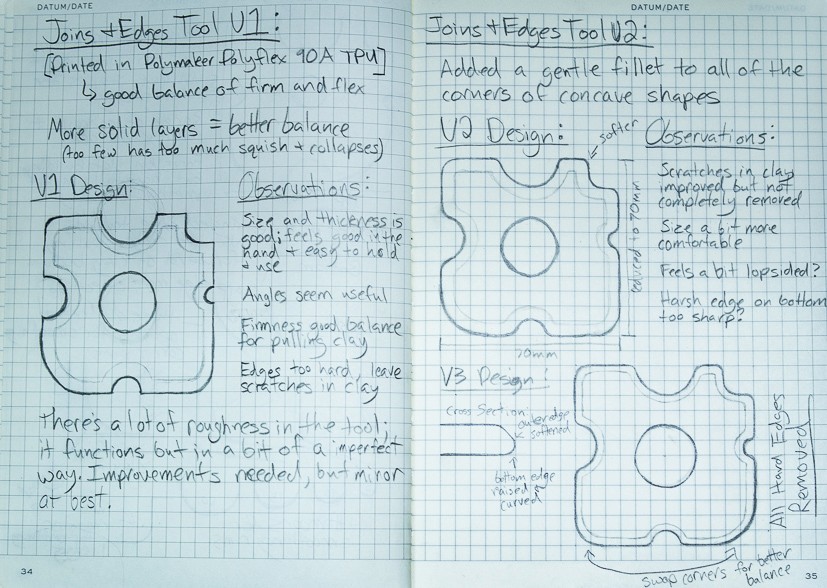 DATUM/DATE
Joins + Edges Tool V1:
[Printed in Polymaker Polyflex 90A TPU]
↳ good balance of firm and flex
More solid layers = better balance
(too few has too much squish + collapses)
V1 Design:
Observations:
Size and thickness is
good; feels good in the
hand + easy to hold
+ use
Angles seem useful
Firmness good balance
for pulling clay
Edges too hard, leave
scratches in clay
There's a lot of roughness in the tool;
it functions but in a bit of a imperfect
way. Improvements needed, but minor
at best.
34
DATUM/DATE
Joins + Edges Tool V2:
Added a gentle fillet to all of the
corners of concave shapes
V2 Design:
softer
reduced to 70mm
70mm
Observations:
Scratches in clay
improved but not
completely removed
Size a bit more
comfortable
Feels a bit lopsided?
Harsh edge on bottom
too sharp?
V3 Design:
Cross Section:
outer edge
softened
bottom edge
raised +
curved
All Hard Edges
Removed
swap corners for better
balance
35